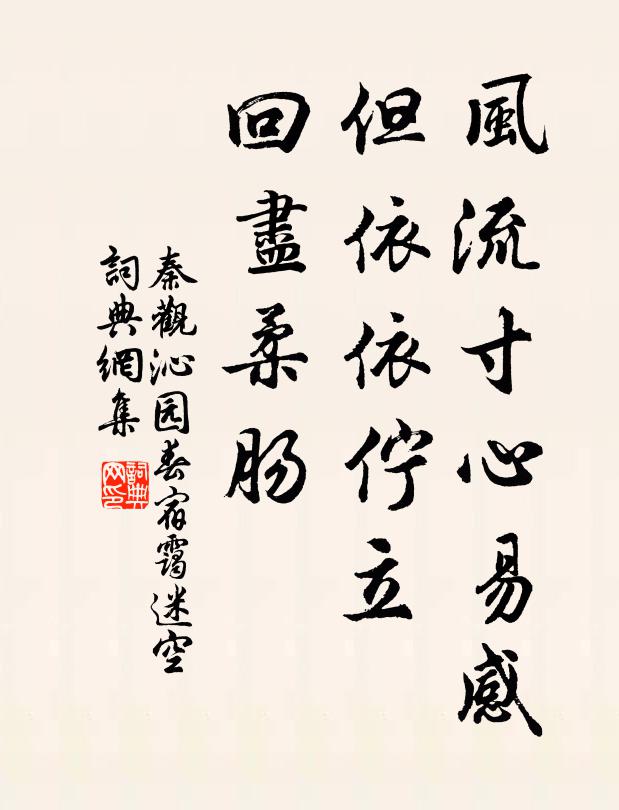 風流寸心易感
但依依佇立
回盡柔肠
秦觀沁园春宿靄迷空
詞典網集
詞典網印